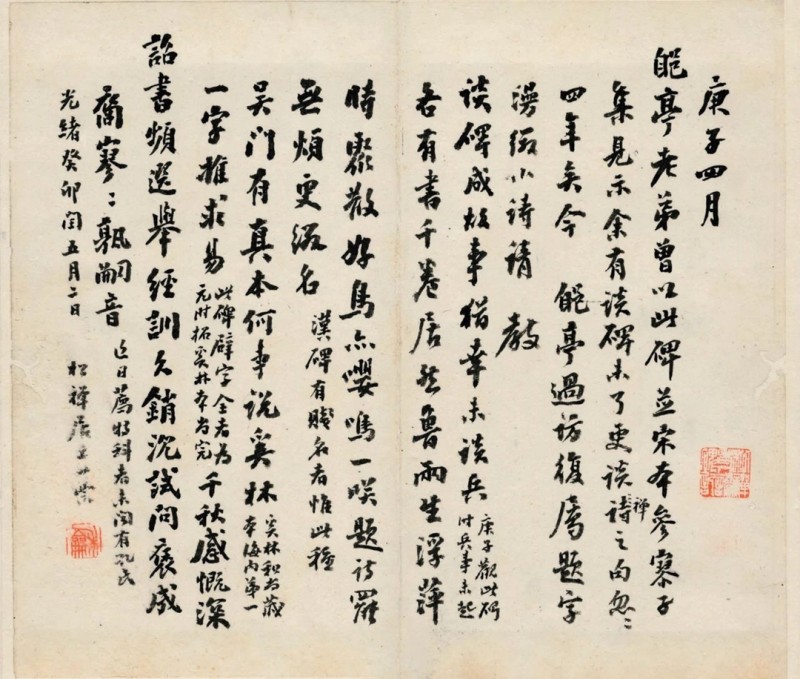 庚子四月
亭老弟曾以此碑並宋本參寥子
集見示余有談碑未了更談詩禪之句忽〻
四年矣今 亭過訪復屬題字
漫綴小詩請 教
談碑成故事猶幸未談兵 庚子觀此碑時兵事未起
各有書千卷居然魯兩生浮萍
時聚散好鳥亦嚶鳴一咲題詩罷
無煩更綴名 漢碑有賤名者惟此種
吳門有真本何事說奚林 奚林和尚藏本海內第一
一字推求易 此碑辟字全者為元時拓奚林本尚完 千秋感慨深
詔書頻選舉經訓久銷沉試問褒成
裔寥〻孰嗣音 近日薦特科者未聞有孔氏
光緒癸卯閏五月二日 松禪居士